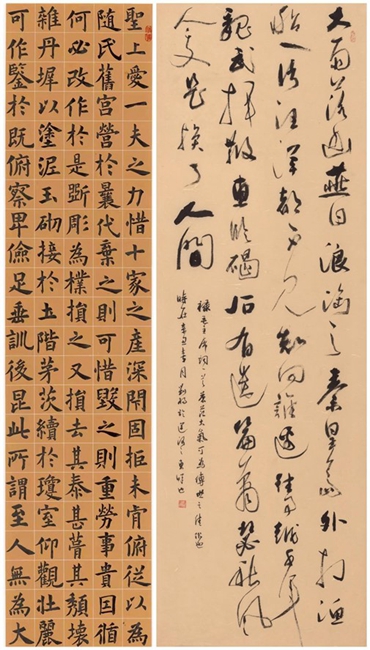 聖上愛一夫之力惜十家之產深閉固拒未肯俯從以為
隨氏舊宮營於曩代棄之則可惜毀之則重勞事貴因循
何必改作於是斲彫為樸損之又損去其泰甚葺其頹壞
雜丹墀以塗泥玉砌接於土階茅茨續於瓊室仰觀壯麗
可作鑒於既俯察卑儉足垂訓後昆此所謂至人無為大
大雨落幽燕白浪滔天秦皇島外打漁
船一片汪洋都不見知向誰邊往事越千年
魏武揮鞭東臨碣石有遺篇蕭瑟秋風
今又是換了人間